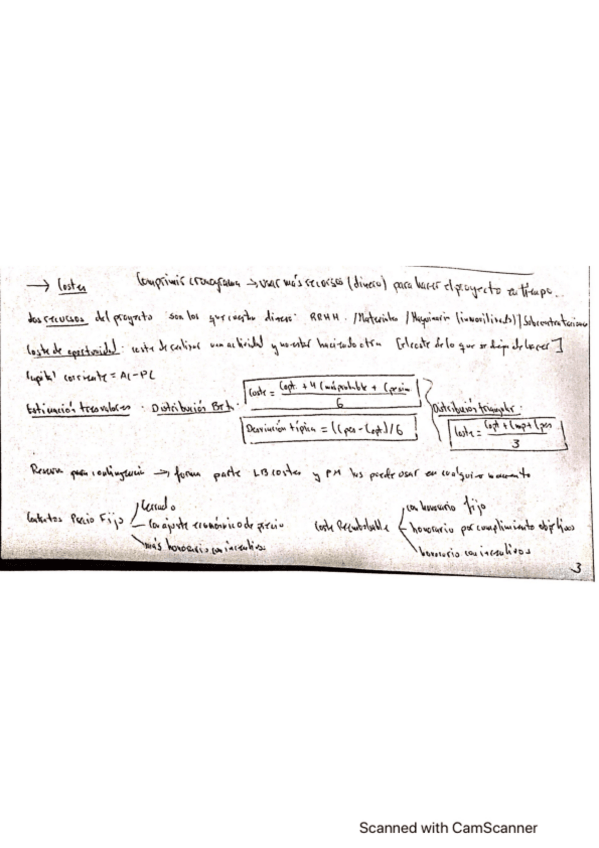 → Costes Comprimir cronograma → usar más recursos (dinero) para hacer el proyecto en tiempo..
Los recursos del proyecto son los que cuestan dinero: RRHH. /Materiales /Maquinaria (inmovilizado)/Subcontrataciones
Coste de oportunidad: coste de realizar una actividad y no estar haciendo otra [el coste de lo que se deja de hacer]
Capital corriente = AC-PC
Estimación tres valores: Distribución Beta: Coste = (Copt. + 4 Cmás probable + Cpesim) / 6
Desviación típica = (Cpes - Copt)/6
Distribución triangular: Coste = (Copt + Cmp + Cpes) / 3
Reserva para contingencia → forma parte LB costes y PM los puede usar en cualquier momento
Contratos Precio Fijo
Cerrado
Con ajuste económico de precio
más honorario con incentivos
Coste Reembolsable
con honorario fijo
honorario por cumplimiento objetivos
honorario con incentivos
3
Scanned with CamScanner